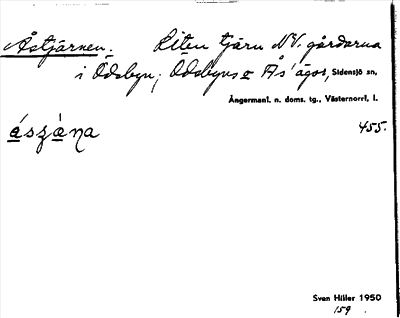 Åstjärnen. Liten tjärn NV. gårdarna
i Ödsbyn; Ödsbyns o Ås' ägor, Sidensjö sn,
Ångermanl. n. doms. tg., Västernorrl, l.
455.
Sven Hiller 1950
159.